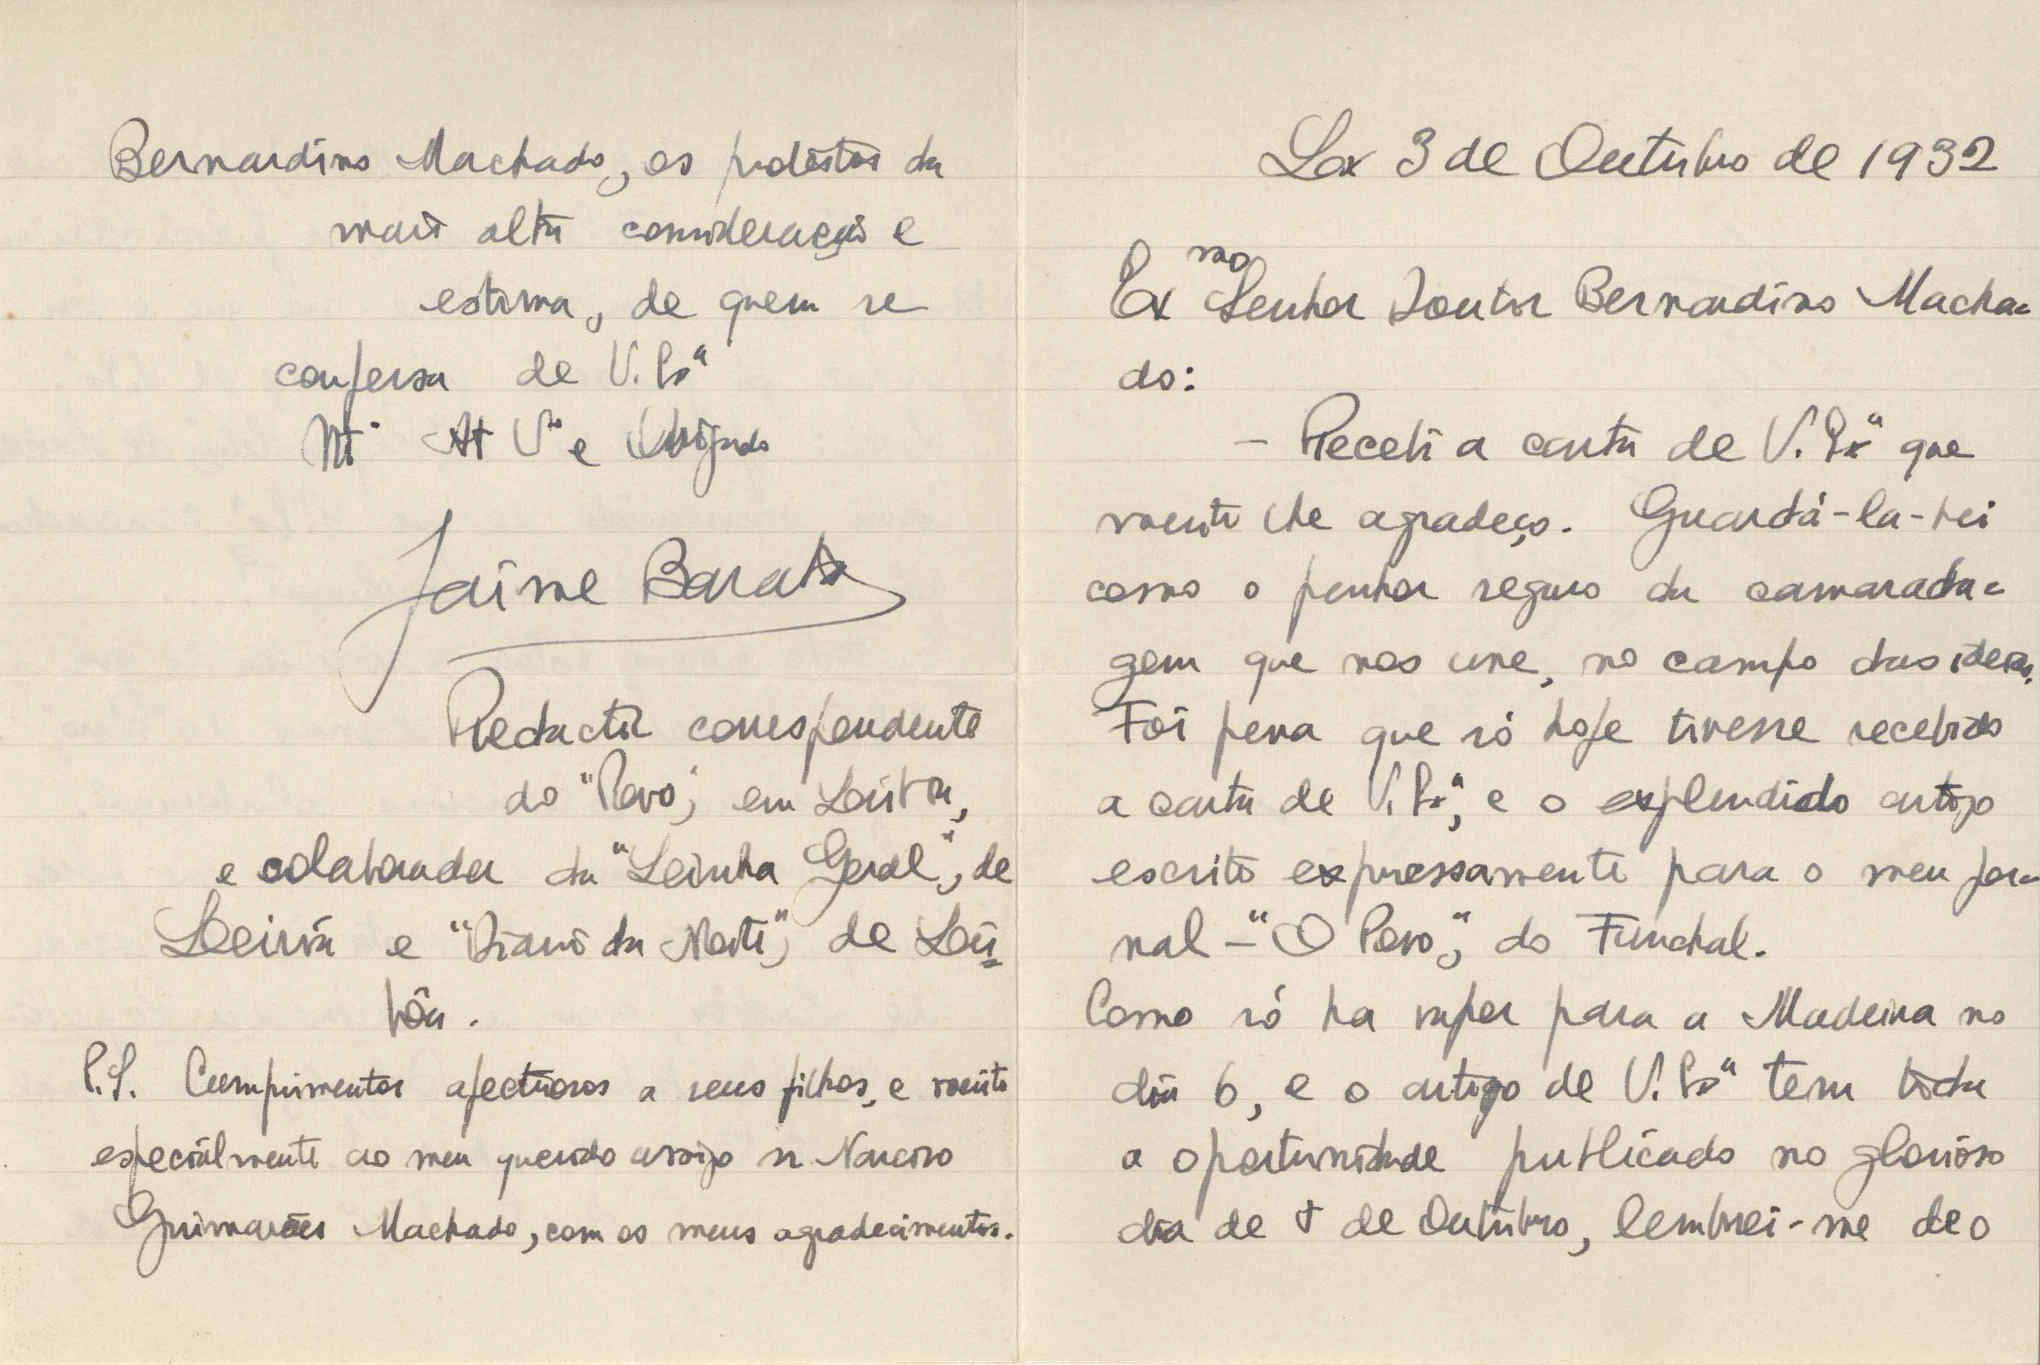 Lx 3 de Outubro de 1932
Exmo Senhor Doutor Bernardino Macha-
do:
- Recebi a carta de V. Exª que
muito lhe agradeço. Guardá-la-hei
como o penhor seguro da camarada-
gem que nos une, no campo das ideas.
Foi pena que só hoje tivesse recebido
a carta de V. Exª, e o explendido artigo
escrito expressamente para o meu jor-
nal - "O Povo", do Funchal.
Como só ha vapor para a Madeira no
dia 6, e o artigo de V. Exª tem toda
a oportunidade publicado no glorioso
dia de 5 de Outubro, lembrei-me de o
Bernardino Machado, os protestos da
mais alta consideração e
estima, de quem se
confessa de V. Exª
Mtº At Vº e Obrigado
Jaime Barata
Redactor correspondente
do "Povo", em Lisboa,
e colaborador da "Linha Geral", de
Leiria e "Diario da Noite", de Lis-
bôa.
P.S. Cumprimentos afectuosos a seus filhos, e muito
especialmente ao meu querido amigo sr Narciso
Guimarães Machado, com os meus agradecimentos.